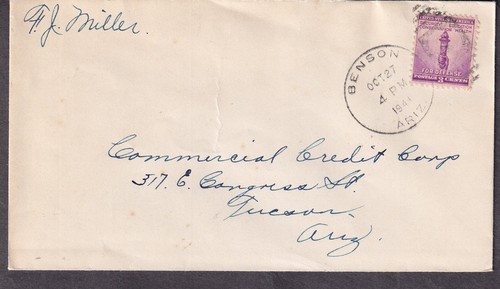 F. J. Miller.
BENSON
OCT 27
4 PM
1941
ARIZ.
UNITED STATES OF AMERICA
FOR DEFENSE
POSTAGE 3 CENTS
Commercial Credit Corp
317 E. Congress St.
Tucson.
Ariz.